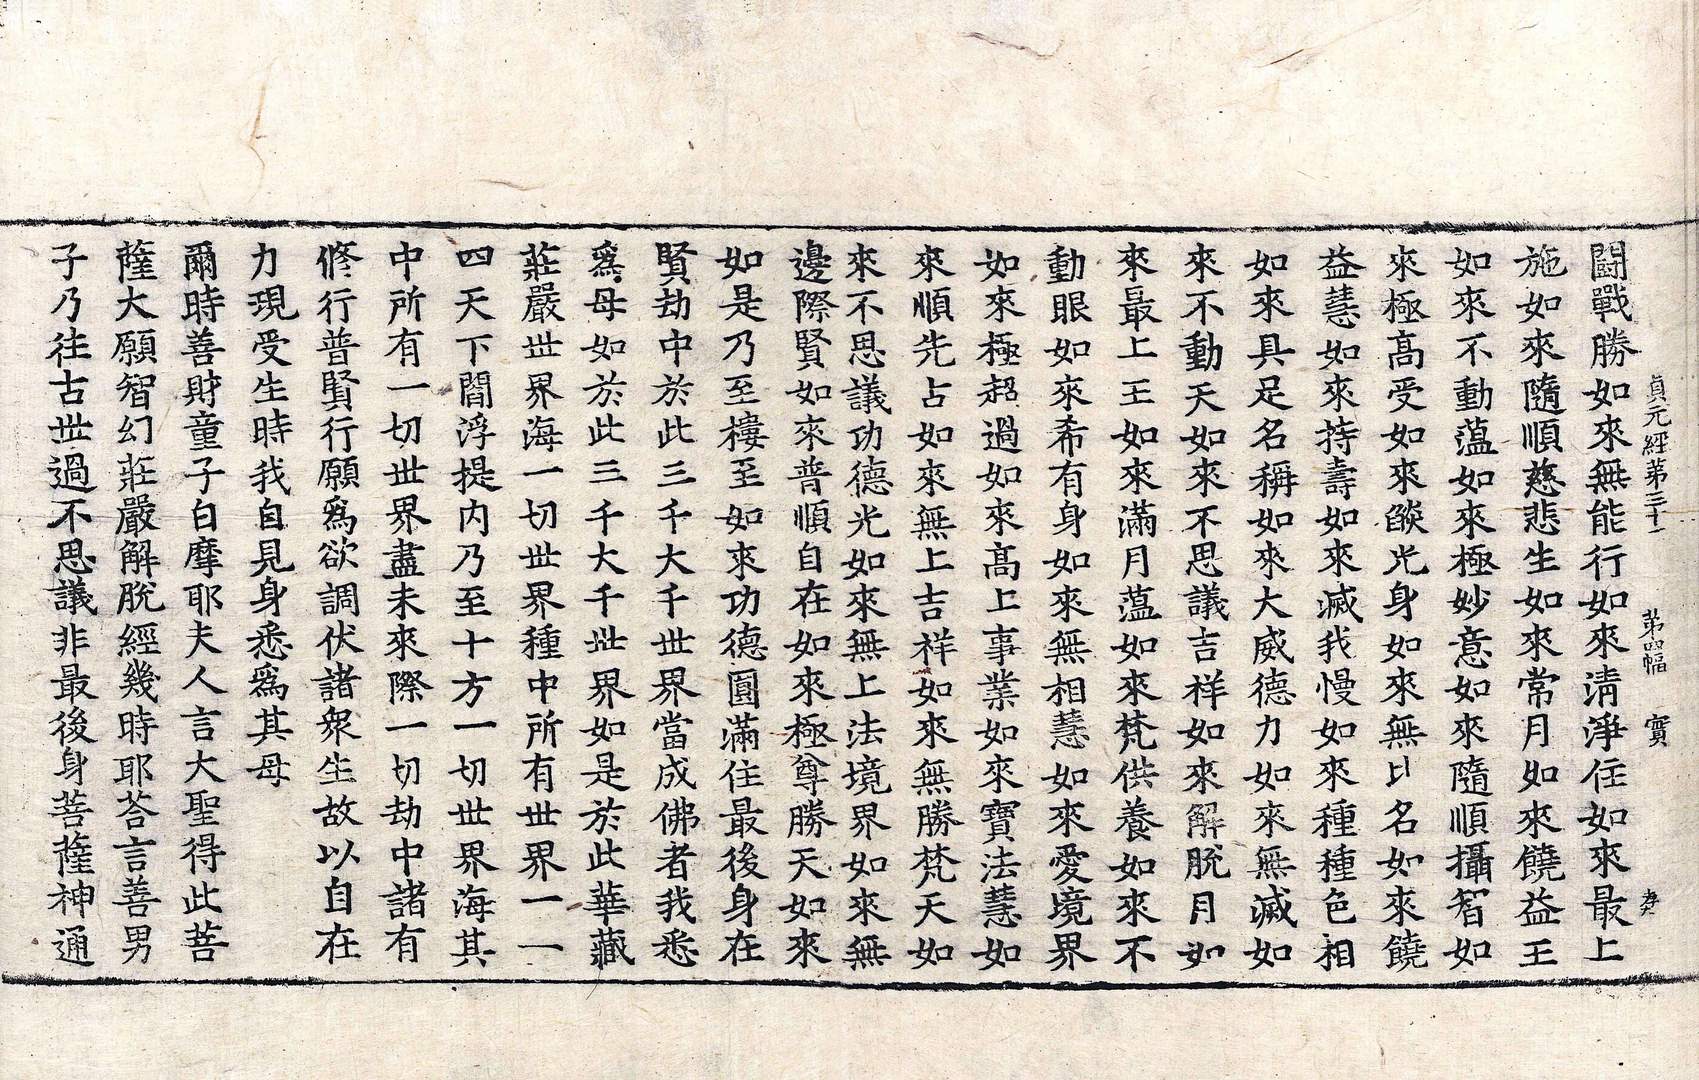 貞元經第三十一 第四幅 寶
鬪戰勝如來無能行如來清淨住如來最上
施如來隨順慈悲生如來常月如來饒益王
如來不動蕰如來極妙意如來隨順攝智如
來極髙受如來燄光身如來無比名如來饒
益慧如來持壽如來滅我慢如來種種色相
如來具足名稱如來大威德力如來無減如
來不動天如來不思議吉祥如來解脫月如
來最上王如來滿月蕰如來梵供養如來不
動眼如來希有身如來無相慧如來愛境界
如來極超過如來髙上事業如來寶法慧如
來順先占如來無上吉祥如來無勝梵天如
來不思議功德光如來無上法境界如來無
邊際賢如來普順自在如來極尊勝天如來
如是乃至樓至如來功德圓滿住最後身在
賢劫中於此三千大千世界當成佛者我悉
爲母如於此三千大千世界如是於此華藏
莊嚴世界海一切世界種中所有世界一一
四天下閻浮提內乃至十方一切世界海其
中所有一切世界盡未來際一切劫中諸有
修行普賢行願爲欲調伏諸衆生故以自在
力現受生時我自見身悉爲其母
爾時善財童子白摩耶夫人言大聖得此菩
薩大願智幻莊嚴解脫經幾時耶荅言善男
子乃往古世過不思議非最後身菩薩神通